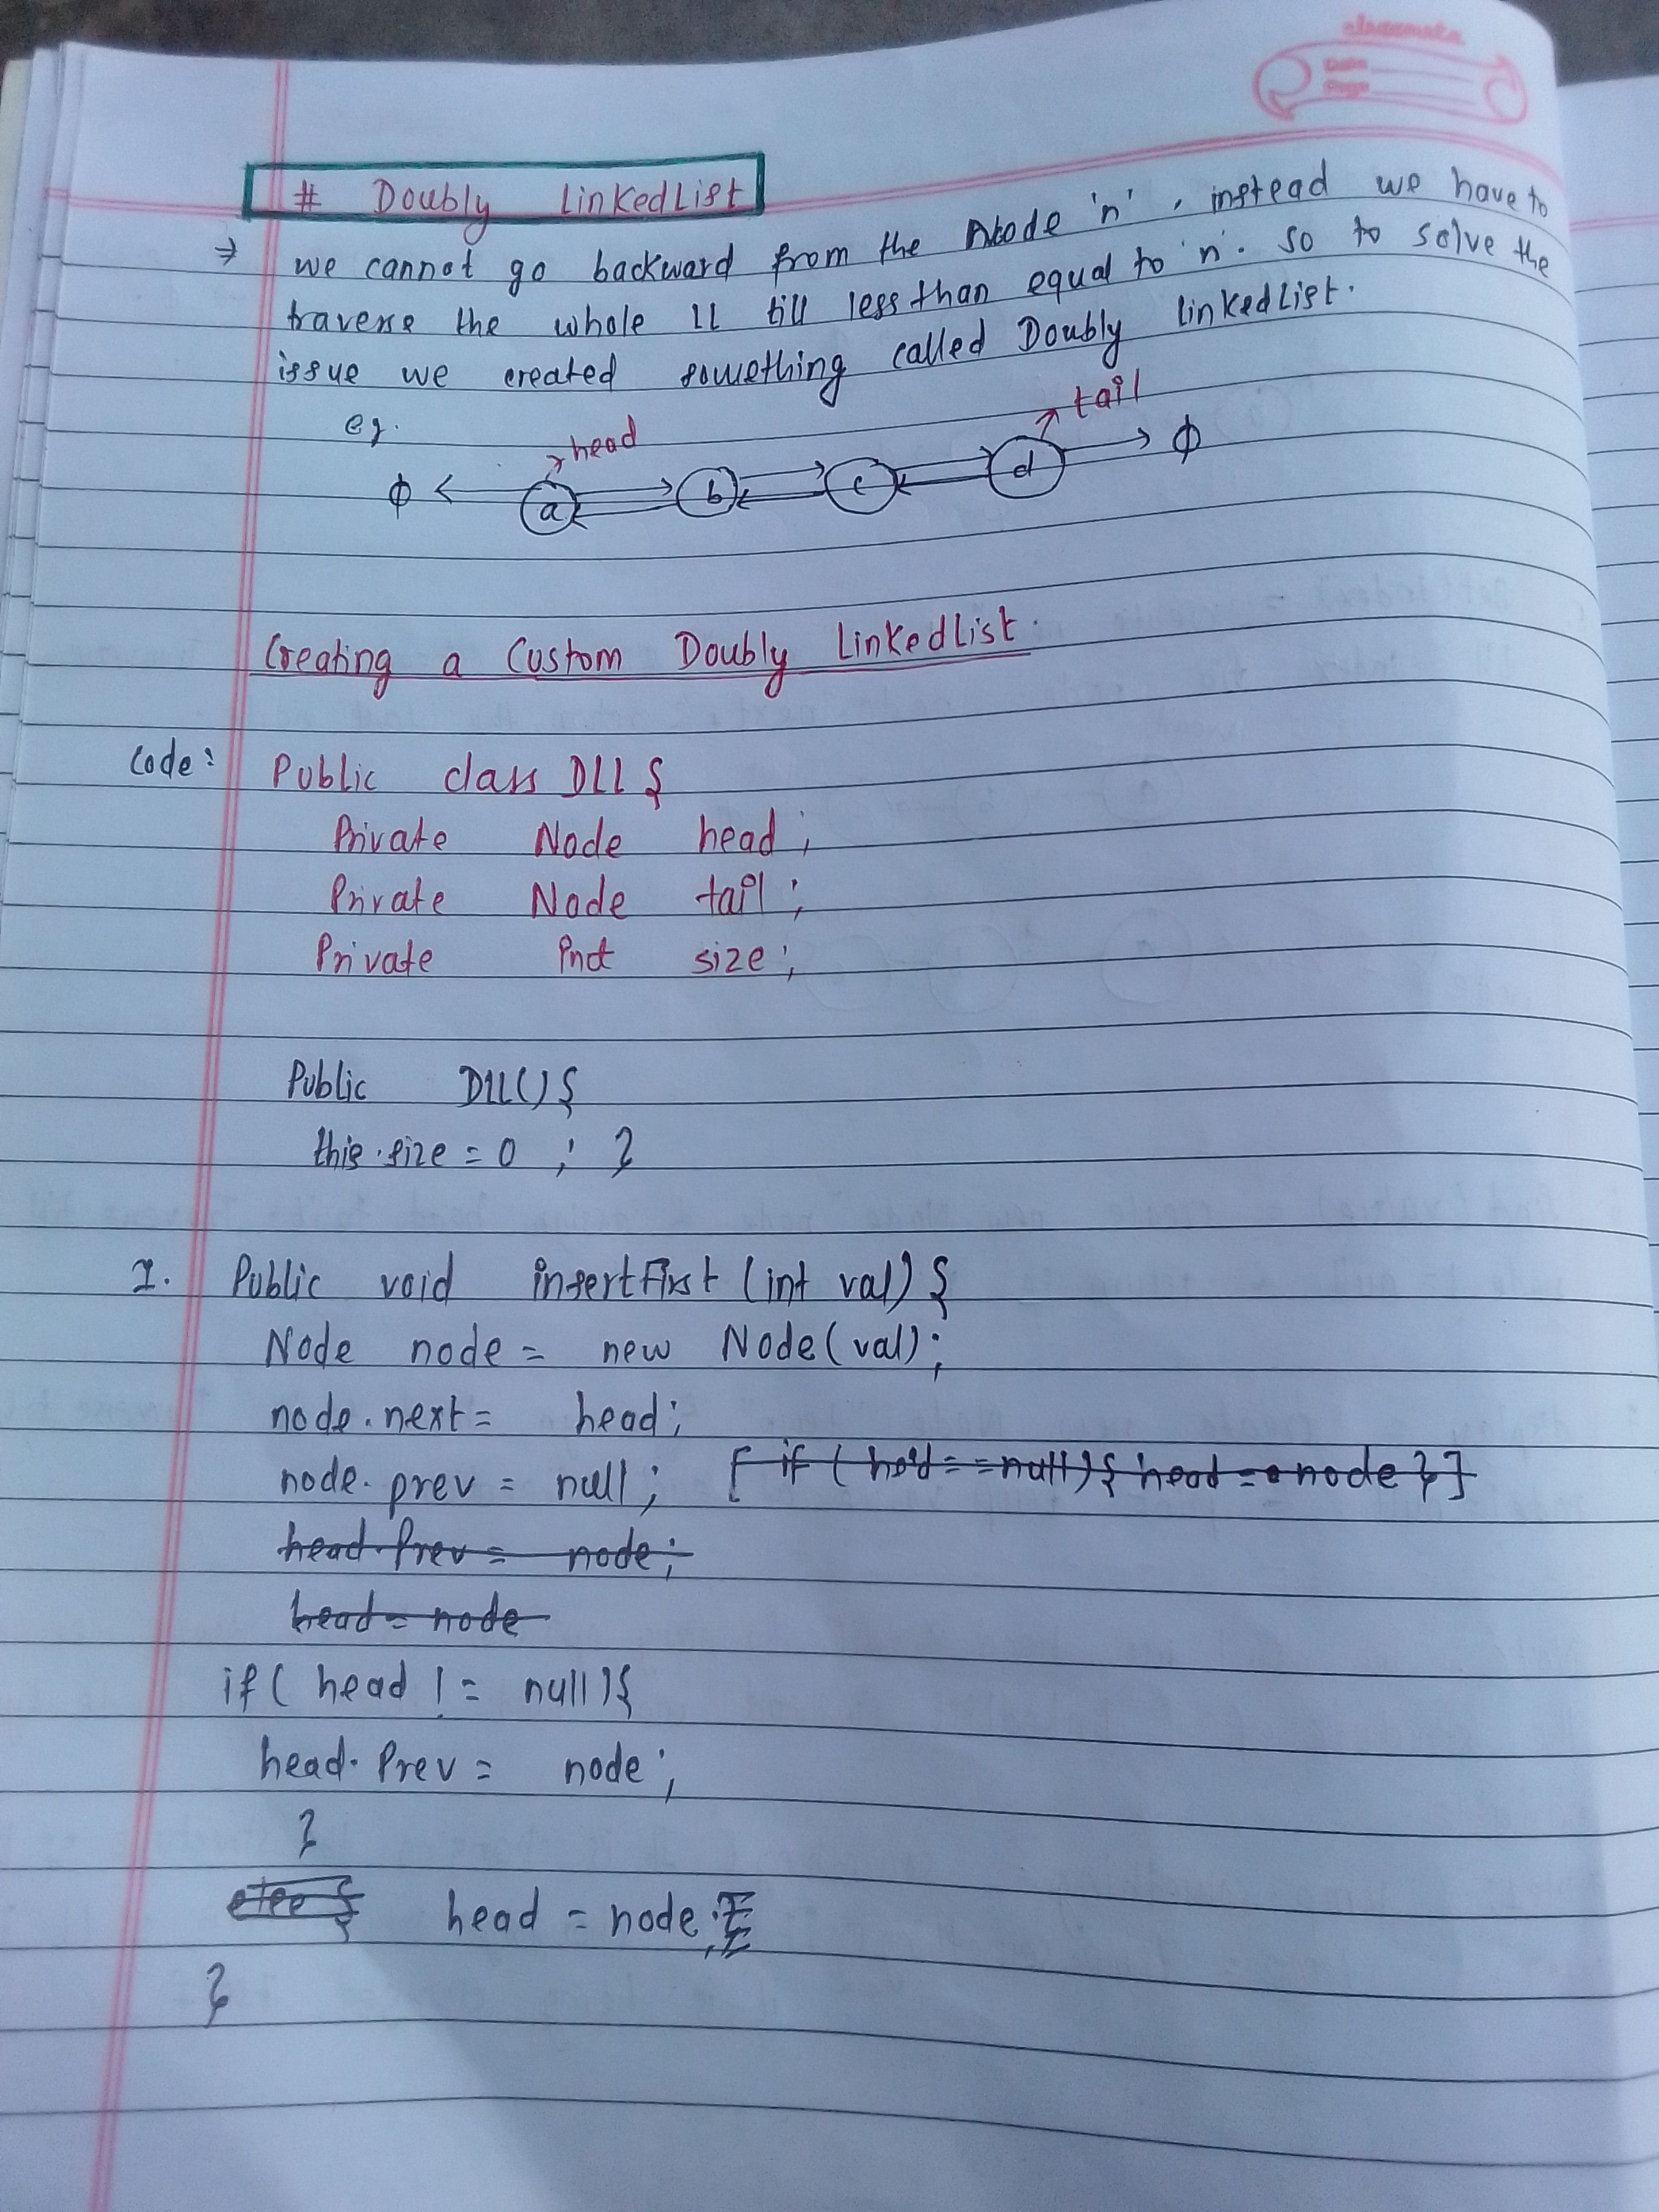 classmate
Date
Page
# Doubly LinkedList
→ we cannot go backward from the Node 'n', instead we have to
traverse the whole LL till less than equal to 'n'. so to solve the
issue we created something called Doubly linkedlist.
eg.
head
tail
ϕ a b c d ϕ
Creating a Custom Doubly LinkedList.
Code: Public class DLL {
Private Node head;
Private Node tail;
Private int size;
Public DLL() {
this.size = 0 ; }
1. Public void insertFirst (int val) {
Node node = new Node(val);
node.next = head;
node.prev = null; [ if ( head == null) { head = node } ]
head.Prev = node;
head = node
if ( head != null) {
head.Prev = node;
}
else { head = node;
}